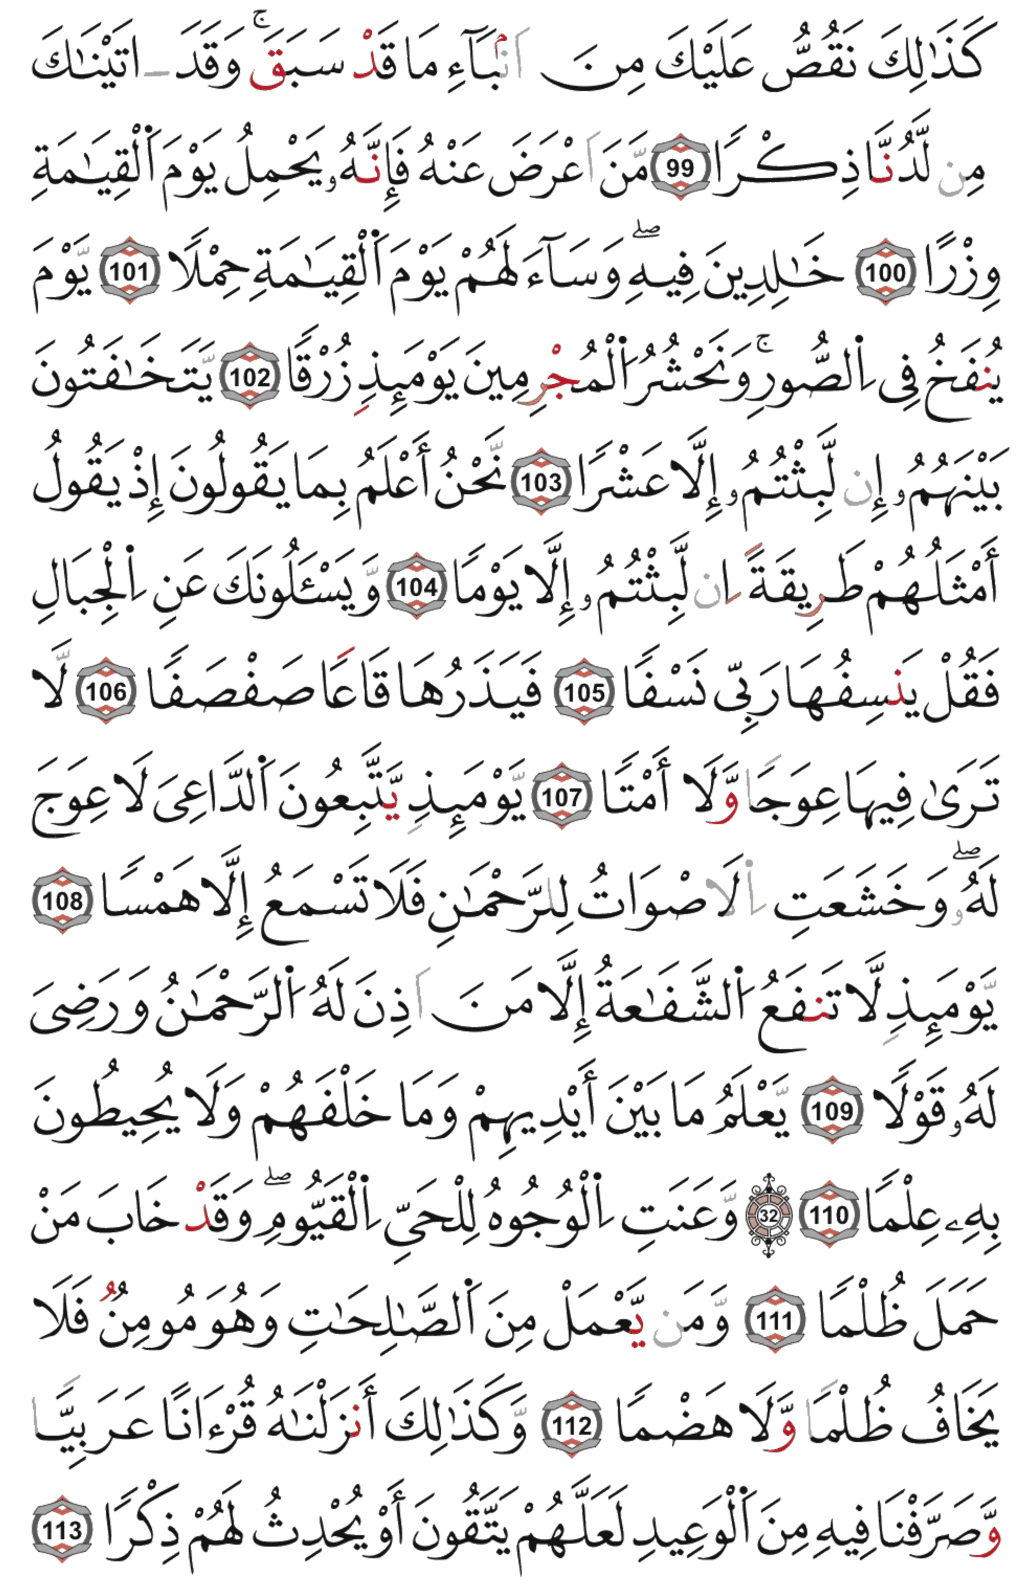 كَذَٰلِكَ نَقُصُّ عَلَيْكَ مِنَ اَنۢبَآءِ مَا قَدْ سَبَقَۚ وَقَدَ ـ اتَيْنَٰكَ
مِن لَّدُنَّا ذِكْرًا 99 مَّنَ اَعْرَضَ عَنْهُ فَإِنَّهُۥ يَحْمِلُ يَوْمَ اَ۬لْقِيَٰمَةِ
وِزْرًا 100 خَٰلِدِينَ فِيهِۖ وَسَآءَ لَهُمْ يَوْمَ اَ۬لْقِيَٰمَةِ حِمْلًا 101 يَّوْمَ
يُنفَخُ فِى اِ۬لصُّورِۚ وَنَحْشُرُ اُ۬لْمُجْرِمِينَ يَوْمَئِذٍ زُرْقًا 102 يَّتَخَٰفَتُونَ
بَيْنَهُمُۥ إِن لَّبِثْتُمُۥ إِلَّا عَشْرًا 103 نَّحْنُ أَعْلَمُ بِمَا يَقُولُونَ إِذْ يَقُولُ
أَمْثَلُهُمْ طَرِيقَةً اِن لَّبِثْتُمُۥ إِلَّا يَوْمًا 104 وَّيَسْـَٔلُونَكَ عَنِ اِ۬لْجِبَالِ
فَقُلْ يَنسِفُهَا رَبِّى نَسْفًا 105 فَيَذَرُهَا قَاعًا صَفْصَفًا 106 لَّا
تَرَىٰ فِيهَا عِوَجًا وَّلَا أَمْتًا 107 يَّوْمَئِذٍ يَّتَّبِعُونَ اَ۬لدَّاعِىَ لَا عِوَجَ
لَهُۥۖ وَخَشَعَتِ اِ۬لَاصْوَاتُ لِلرَّحْمَٰنِ فَلَا تَسْمَعُ إِلَّا هَمْسًا 108
يَّوْمَئِذٍ لَّا تَنفَعُ اُ۬لشَّفَٰعَةُ إِلَّا مَنَ اَذِنَ لَهُ اُ۬لرَّحْمَٰنُ وَرَضِىَ
لَهُۥ قَوْلًا 109 يَّعْلَمُ مَا بَيْنَ أَيْدِيهِمْ وَمَا خَلْفَهُمْ وَلَا يُحِيطُونَ
بِهِۦ عِلْمًا 110 32 وَّعَنَتِ اِ۬لْوُجُوهُ لِلْحَىِّ اِ۬لْقَيُّومِۖ وَقَدْ خَابَ مَنْ
حَمَلَ ظُلْمًا 111 وَّمَن يَّعْمَلْ مِنَ اَ۬لصَّٰلِحَٰتِ وَهُوَ مُومِنٌ فَلَا
يَخَافُ ظُلْمًا وَّلَا هَضْمًا 112 وَّكَذَٰلِكَ أَنزَلْنَٰهُ قُرْءَانًا عَرَبِيًّا
وَّصَرَّفْنَا فِيهِ مِنَ اَ۬لْوَعِيدِ لَعَلَّهُمْ يَتَّقُونَ أَوْ يُحْدِثُ لَهُمْ ذِكْرًا 113